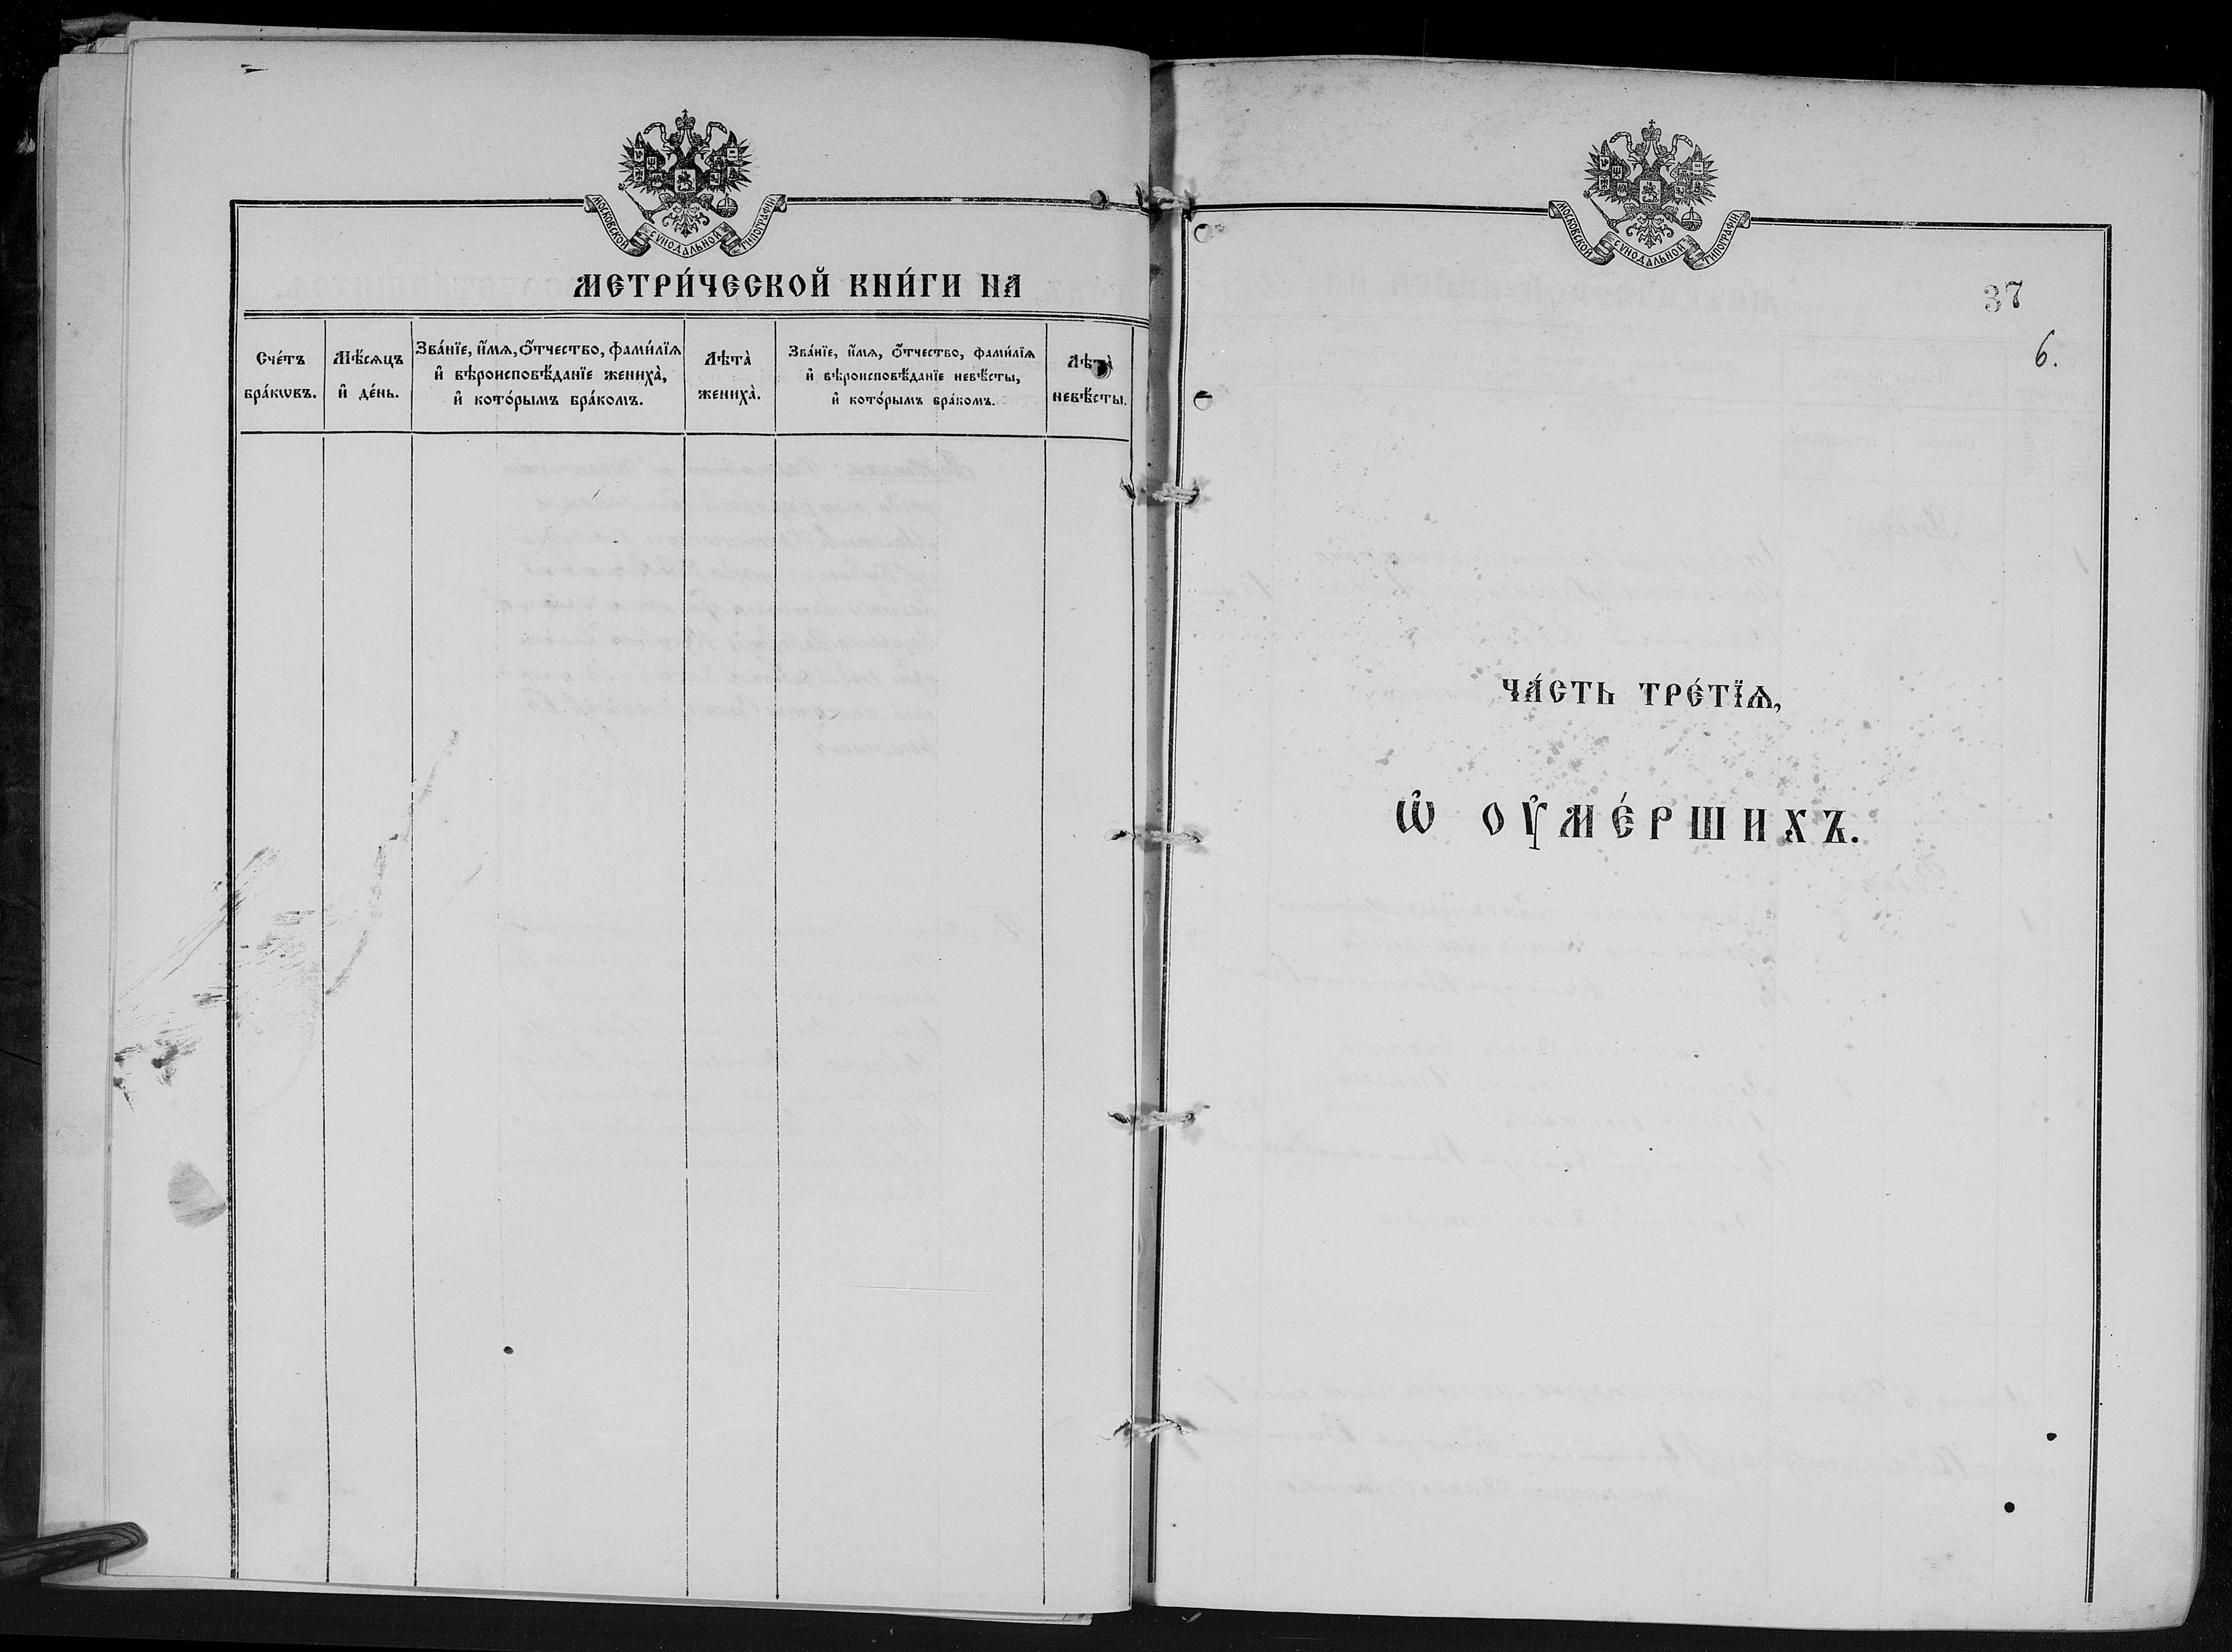 МОСКОВСКОЙ СѴНОДАЛЬНОЙ ТИПОГРАФІИ
МЕТРИ́ЧЕСКОЙ КНИ́ГИ НА
Сче́тъ бра́кѡвъ.
Мѣ́сѧцъ и҆ де́нь.
Зва́нїе, и҆́мѧ, ѻ҆́тчество, фами́лїѧ
и҆ вѣроисповѣ́данїе жениха̀,
и҆ кото́рымъ бра́комъ.
Лѣта̀ жениха̀.
Зва́нїе, и҆́мѧ, ѻ҆́тчество, фами́лїѧ
и҆ вѣроисповѣ́данїе невѣ́сты,
и҆ кото́рымъ бра́комъ.
Лѣта̀ невѣ́сты.
МОСКОВСКОЙ СѴНОДАЛЬНОЙ ТИПОГРАФІИ
37
6.
ЧА́СТЬ ТРЕ́ТЇѦ,
Ѡ҆ ОУ҆МЕ́РШИХЪ.